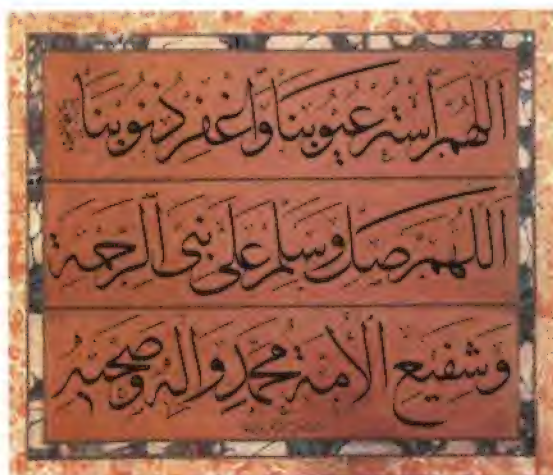 اَللّٰهُمَّ اسْتُرْ عُيُوبَنَا وَاغْفِرْ ذُنُوبَنَا
اَللّٰهُمَّ صَلِّ وَسَلِّمْ عَلٰى نَبِيِّ الرَّحْمَةِ
وَشَفِيعِ الْاُمَّةِ مُحَمَّدٍ وَاٰلِهِ وَصَحْبِهِ